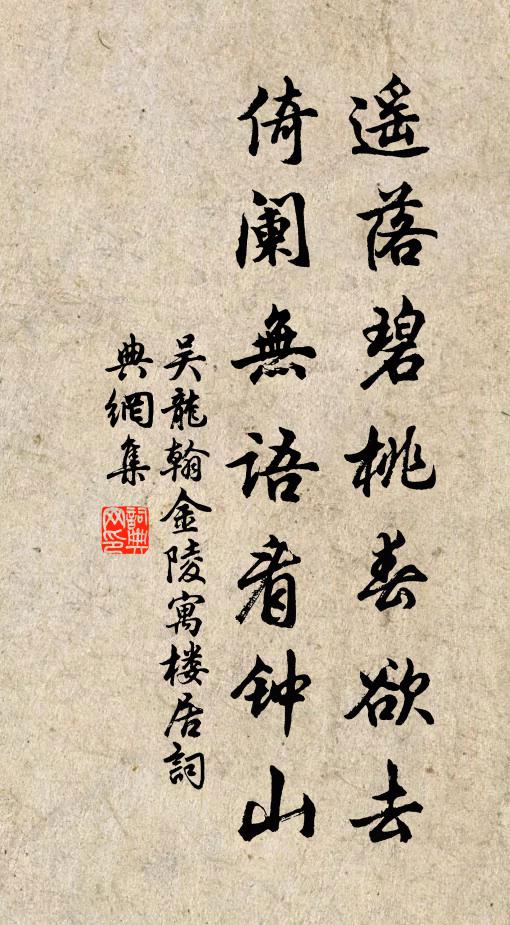 遥落碧桃春欲去
倚阑無语看钟山
吴龍翰金陵寓楼居詞
典網集
詞典网印